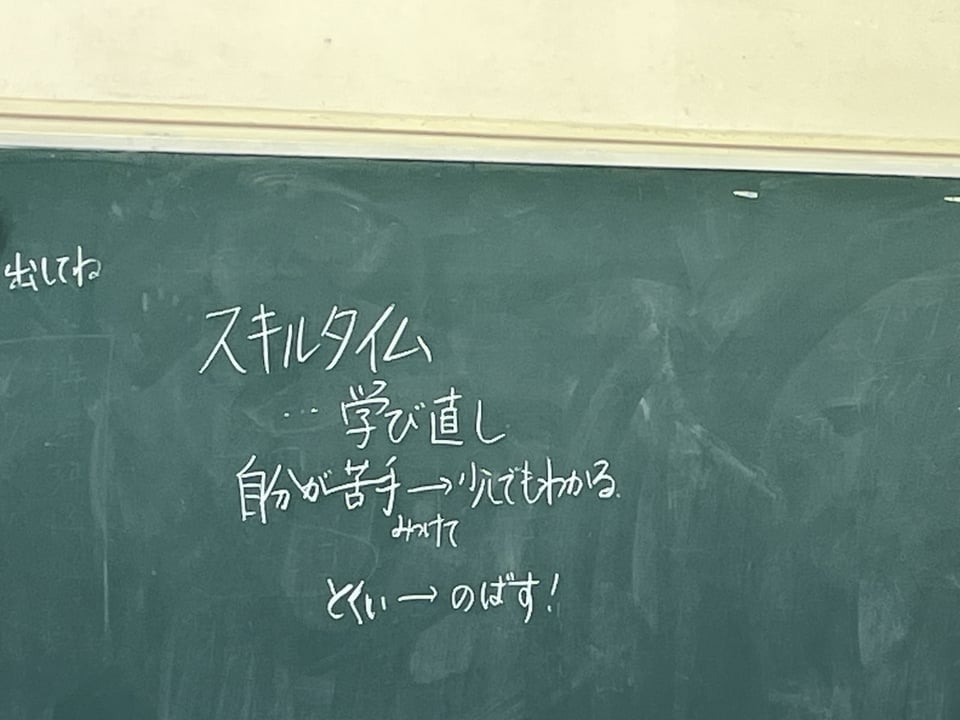 出してね
スキルタイム
… 学び直し
自分が苦手→少しでもわかる.
みつけて
とくい→のばす!